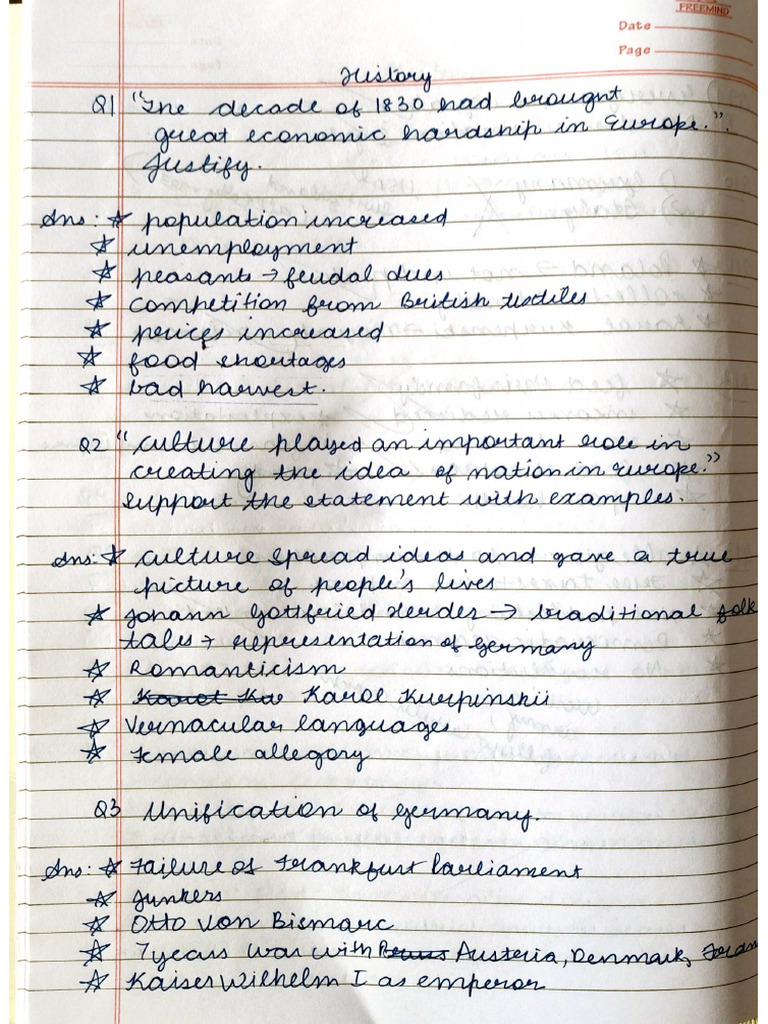 FREEMIND
Date
Page
History
Q1 "The decade of 1830 had brought
great economic hardship in Europe.".
Justify.
Ans: ☆ population increased
☆ unemployment
☆ peasants → feudal dues
☆ competition from British textiles
☆ prices increased
☆ food shortages
☆ bad harvest.
Q2 "Culture played an important role in
creating the idea of nation in Europe."
Support the statement with examples.
Ans: ☆ Culture spread ideas and gave a true
picture of people's lives
☆ Johann Gottfried Herder → traditional folk
tales → representation of Germany
☆ Romanticism
☆ Karol Kurpinskii
☆ Vernacular languages
☆ Female allegory
Q3 Unification of Germany.
Ans: ☆ Failure of Frankfurt Parliament
☆ Junkers
☆ Otto von Bismarc
☆ 7 years was with Austeria, Denmark,
☆ Kaiser Wilhelm I as emperor